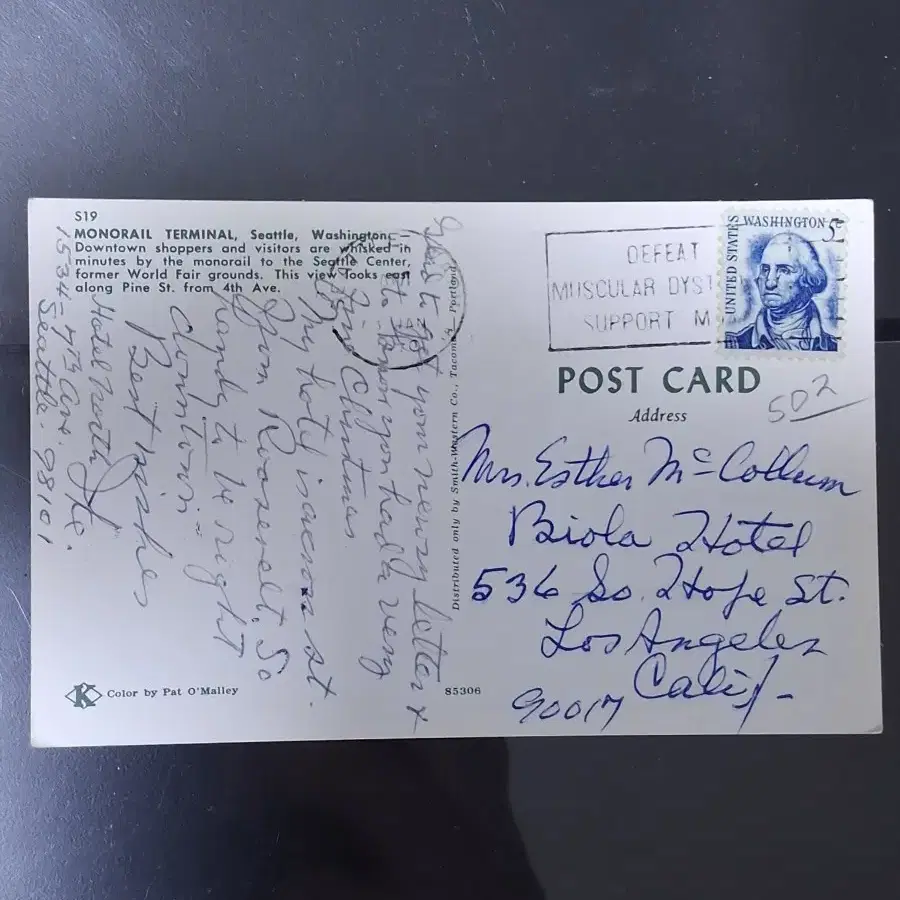 S19
MONORAIL TERMINAL, Seattle, Washington.
Downtown shoppers and visitors are whisked in
minutes by the monorail to the Seattle Center,
former World Fair grounds. This view looks east
along Pine St. from 4th Ave.
Glad to get your newsy letter &
to know you had a very
fine Christmas
My hotel is across st.
from Roosevelt. So
handy to be right
downtown =
Best wishes
Hotel North
1534 - 7th Ave.
Seattle. 98101
K Color by Pat O'Malley
Distributed only by Smith-Western Co., Tacoma - Portland
85306
DEFEAT
MUSCULAR DYST
SUPPORT M
UNITED STATES
WASHINGTON 5c
POST CARD
Address
502
Mrs. Esther McCollum
Biola Hotel
536 So. Hope St.
Los Angeles
Calif -
90017